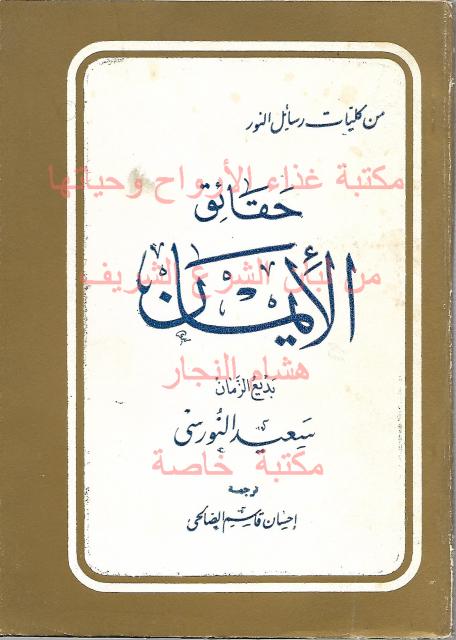 من كليات رسائل النور
مكتبة غذاء الأرواح وحياتها
حقائق
الأيمان
من لبان الشرع الشريف
هشام النجار
بديع الزمان
سعيد النورسي
مكتبة خاصة
ترجمة
إحسان قاسم الصالحي